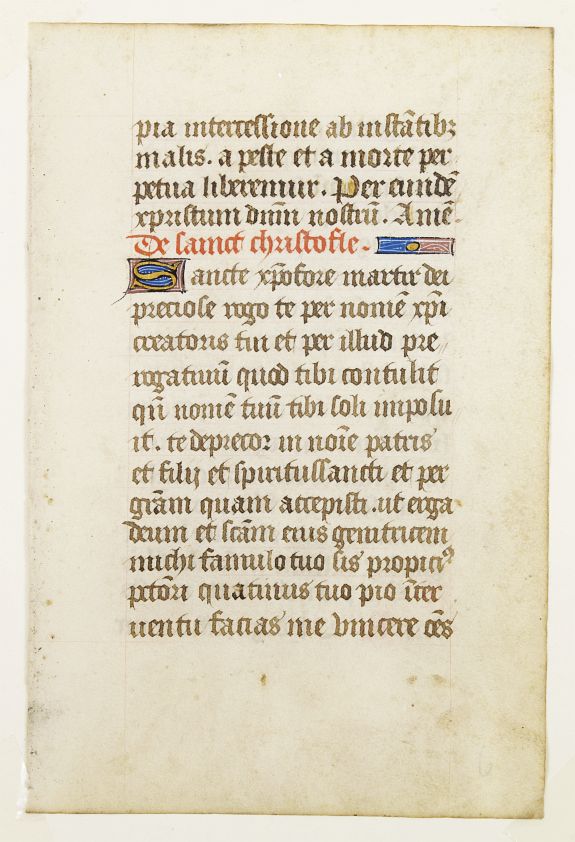 pia intercessione ab instātibꝫ
malis. a peste et a morte per
petua liberemur. Per eundē
xpristum dnm̄ nostrū. Amē
De sainct christofle.
Sancte xpōfore martir dei
preciose rogo te per nomē xpī
creatoris tui et per illud pre
rogatiuū quod tibi contulit
qn̄ nomē tuū tibi soli imposu
it. te deprecor in noīe patris
et filij et spiritussancti et per
grām quam accepisti. ut erga
deum et scām eius genitricem
michi famulo tuo sis propiciꝰ
pctōri quatinus tuo pio īter
uentu facias me vincere oēs